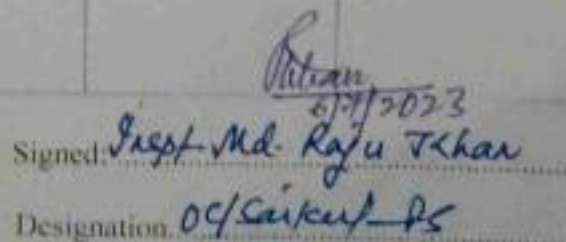 6/7/2023
Signed: Inspt Md. Raju Khan
Designation. OC/Saikul-PS